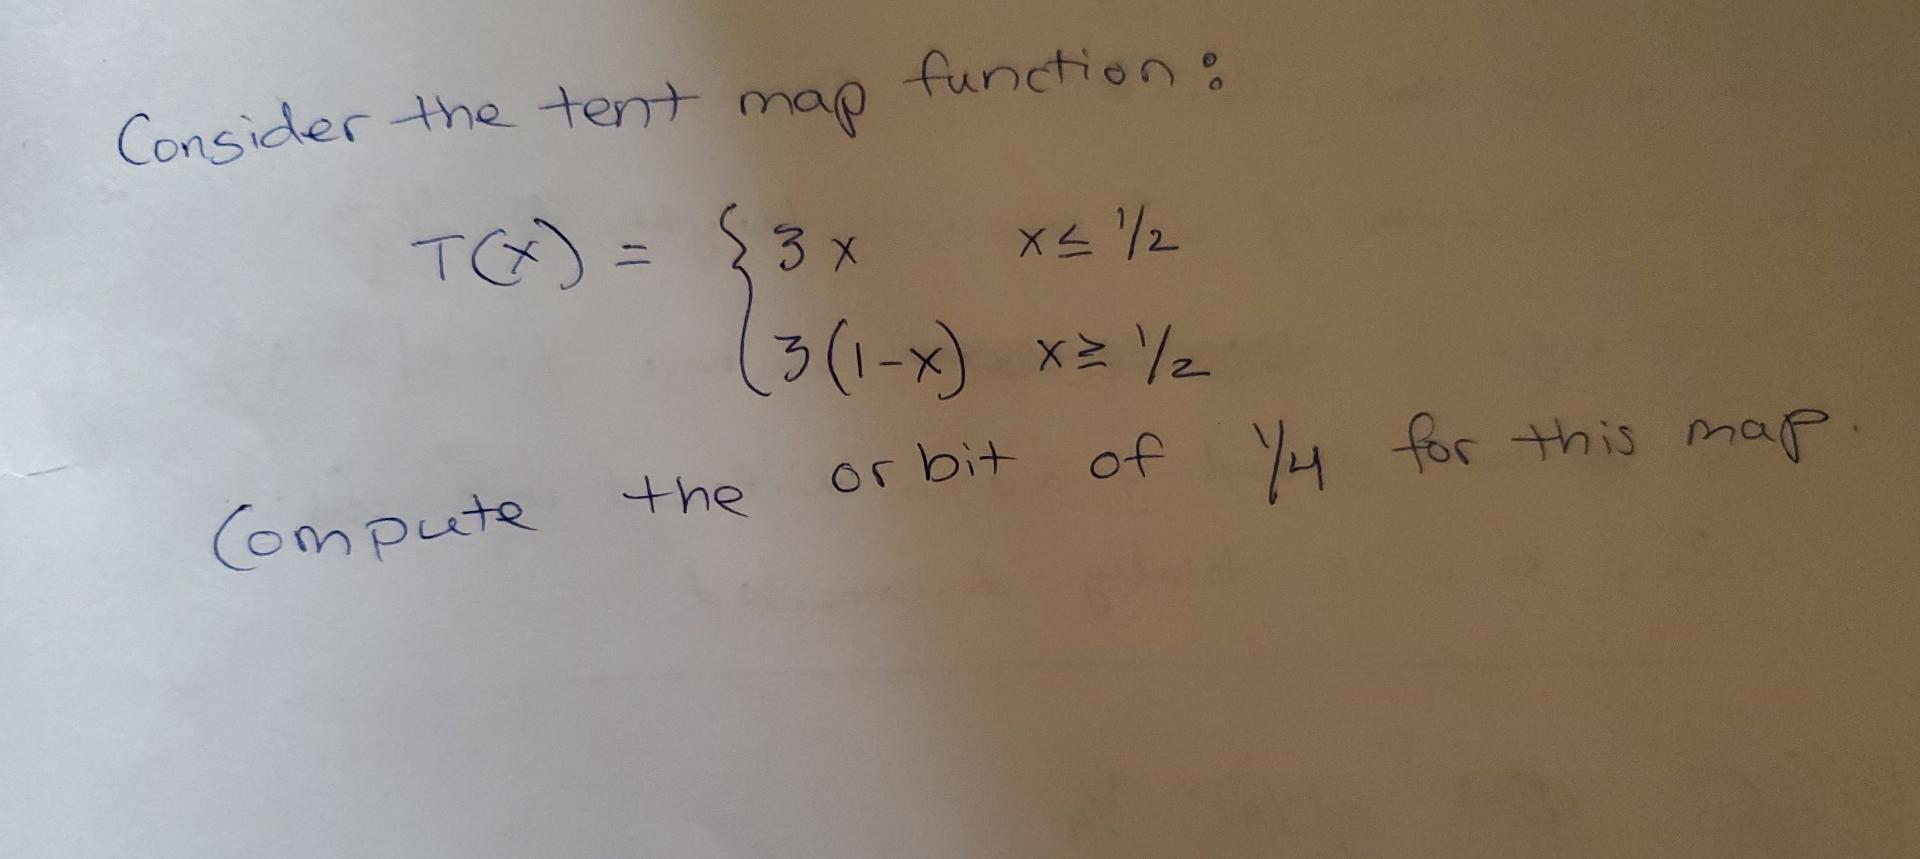 Consider the tent map function:
T(x) = { 3x x ≤ 1/2
3(1-x) x ≥ 1/2
Compute the orbit of 1/4 for this map.